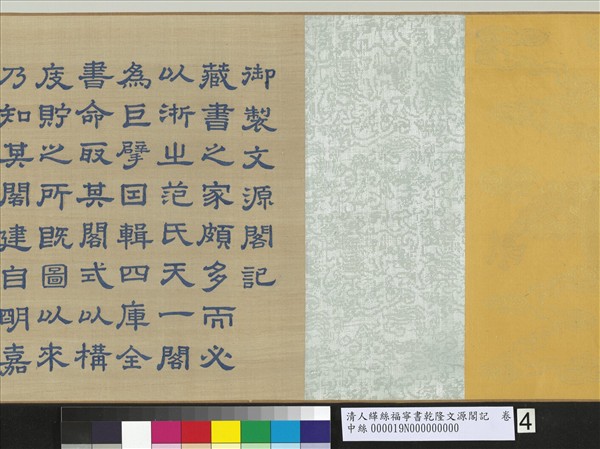 御製文源閣記
藏書之家頗多而必
以浙之范氏天一閣
為巨擘囙輯四庫全
書命取其閣式以構
庋貯之所既圖以來
乃知其閣建自明嘉
清人緙絲福寧書乾隆文源閣記 卷
中絲000019N000000000
4